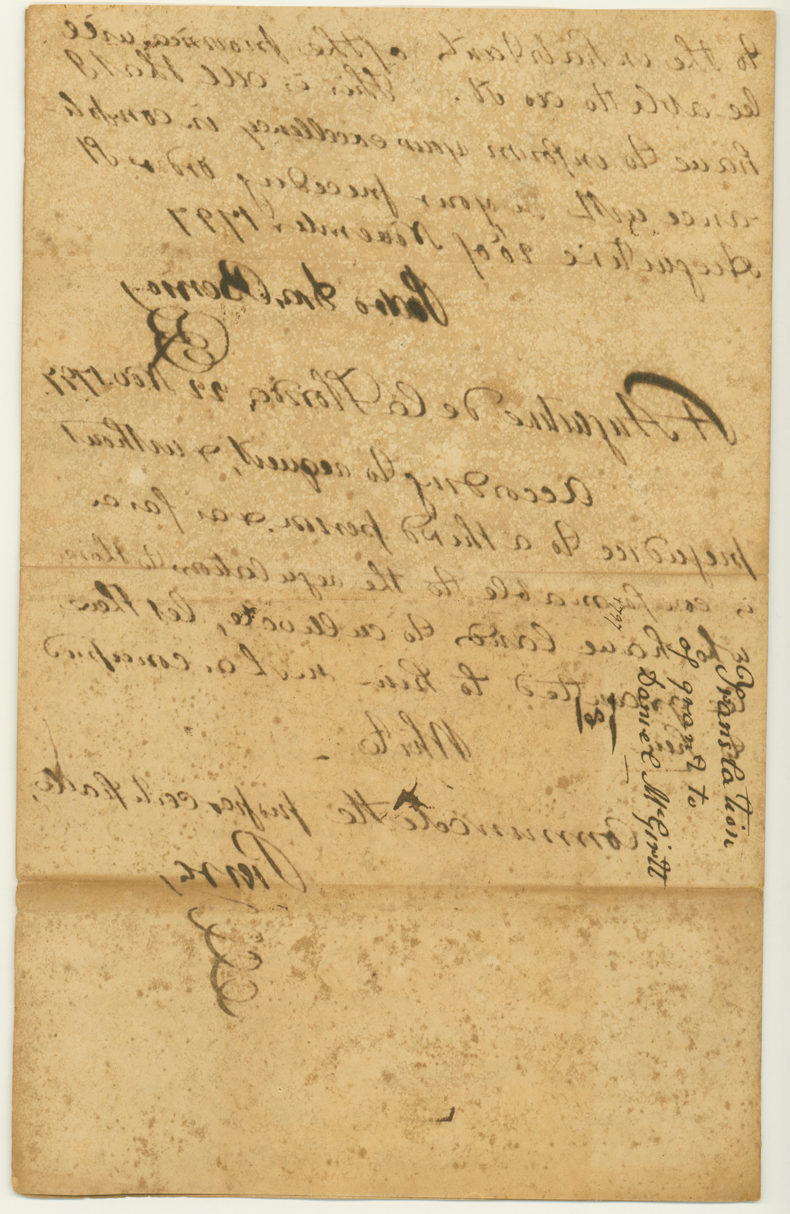 to the inhabitants of the province, will
be able to do it. This is all that I
have to inform your excellency in compli-
ance with your preceding order St
Augustine 20 of November 1797
Pedro Dn. Berrio,
St Augustine de la Florida, 22 Nov. 1797.
According to request, & without
prejudice to a third person & as far as
is conformable to the regulations to those
who have lands to cultivate, let those
granted to him
White
Communicate the proper certificate,
Pierra,
Translation
of grant to
Daniel McGirtt
1797